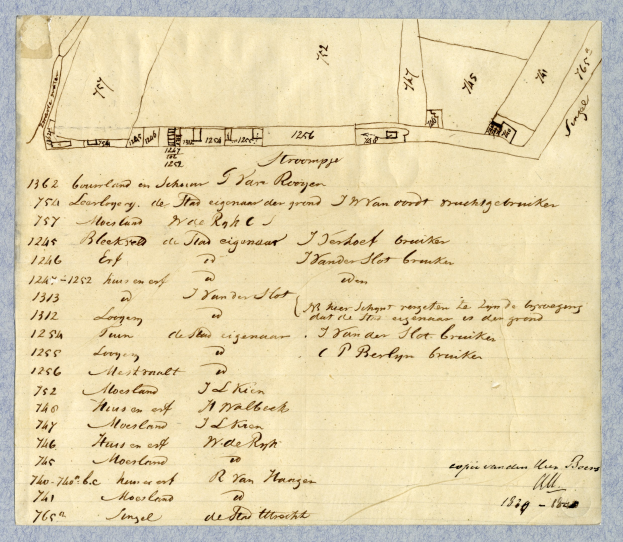 757
752
747
745
741
765a
Singel
754
1245
1246
1247
1252
1254
1255
1256
748
Stroompje
1362 bouwland en Schuur G Van Rooyen
754 Leerlooyery de Stad eigenaar der grond J W Van oordt vruchtgebruiker
757 Moesland W de Ryk C J
1245 de Stad eigenaar J Verhoef bruiker
1246 Erf id J Vander Slot bruiker
1247-1252 huis en erf id idem
1313 id J Vander Slot
NB hier schynt vergeten te zyn de byvoeging
1312 Looyery id dat de Stad eigenaar is der grond
1254 Tuin de Stad eigenaar J Van der Slot bruiker
1255 Looyery id C P Berlyn bruiker
1256 Mestvaalt id
752 Moesland J L Kien
748 Huis en erf H Walbeek
747 Moesland J L Kien
746 Huis en erf W. de Ryk
745 Moesland id
740-740a.b.c huis en erf R Van Haazen
741 Moesland id
765a Singel de Stad Utrecht
copie van den Heer Boers